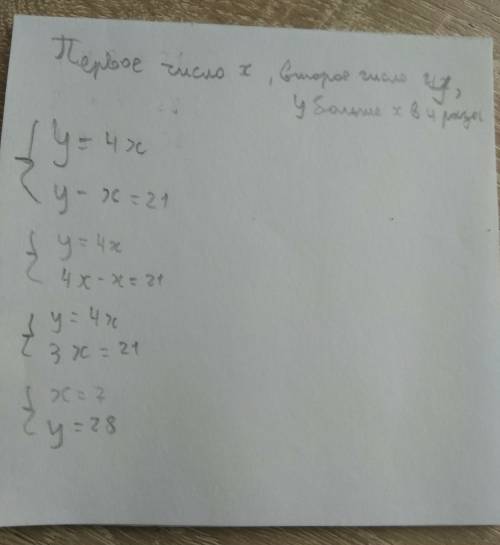 Первое число x, второе число y,
y больше x в 4 раза
y = 4x
y - x = 21
y = 4x
4x - x = 21
y = 4x
3x = 21
x = 7
y = 28